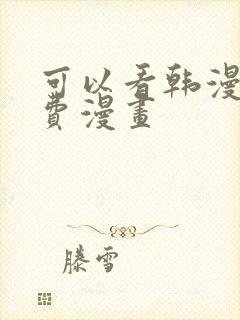 可以看韩漫
費漫畫
滕雪